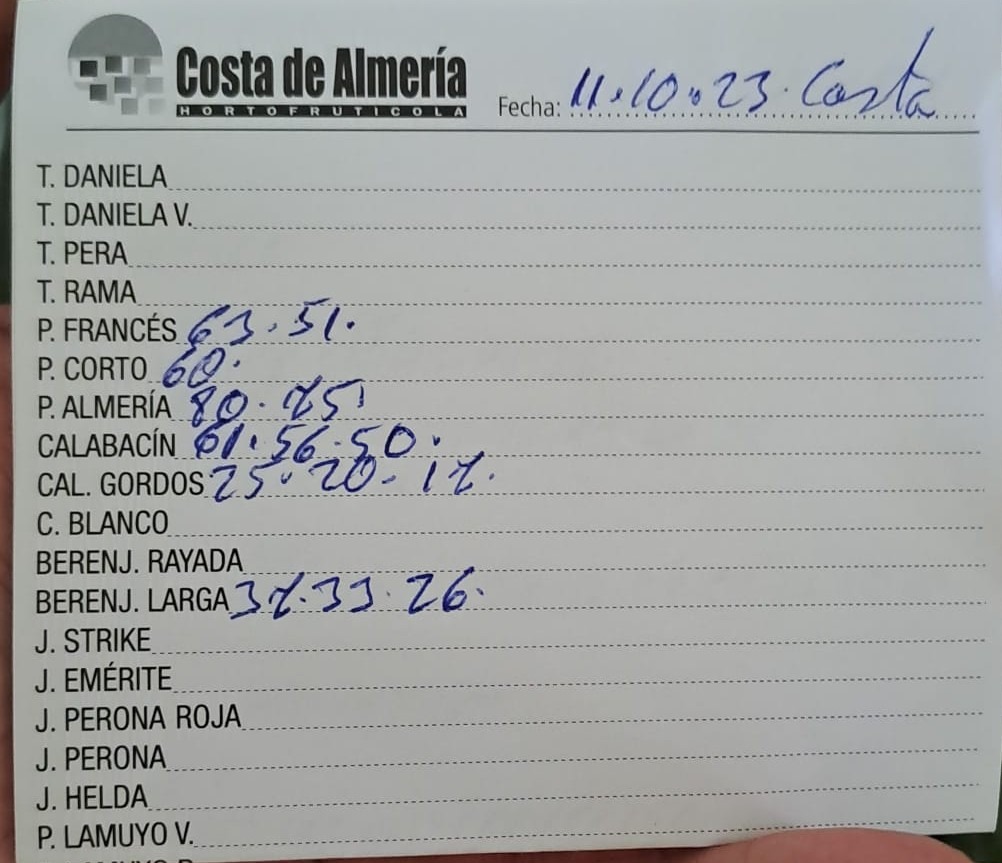 Costa de Almería
HORTOFRUTICOLA
Fecha: 11.10.23. Costa
T. DANIELA
T. DANIELA V.
T. PERA
T. RAMA
P. FRANCÉS 63.51.
P. CORTO 60.
P. ALMERÍA 80.75
CALABACÍN 61.56.50.
CAL. GORDOS 25.20.17.
C. BLANCO
BERENJ. RAYADA
BERENJ. LARGA 37.33.26.
J. STRIKE
J. EMÉRITE
J. PERONA ROJA
J. PERONA
J. HELDA
P. LAMUYO V.